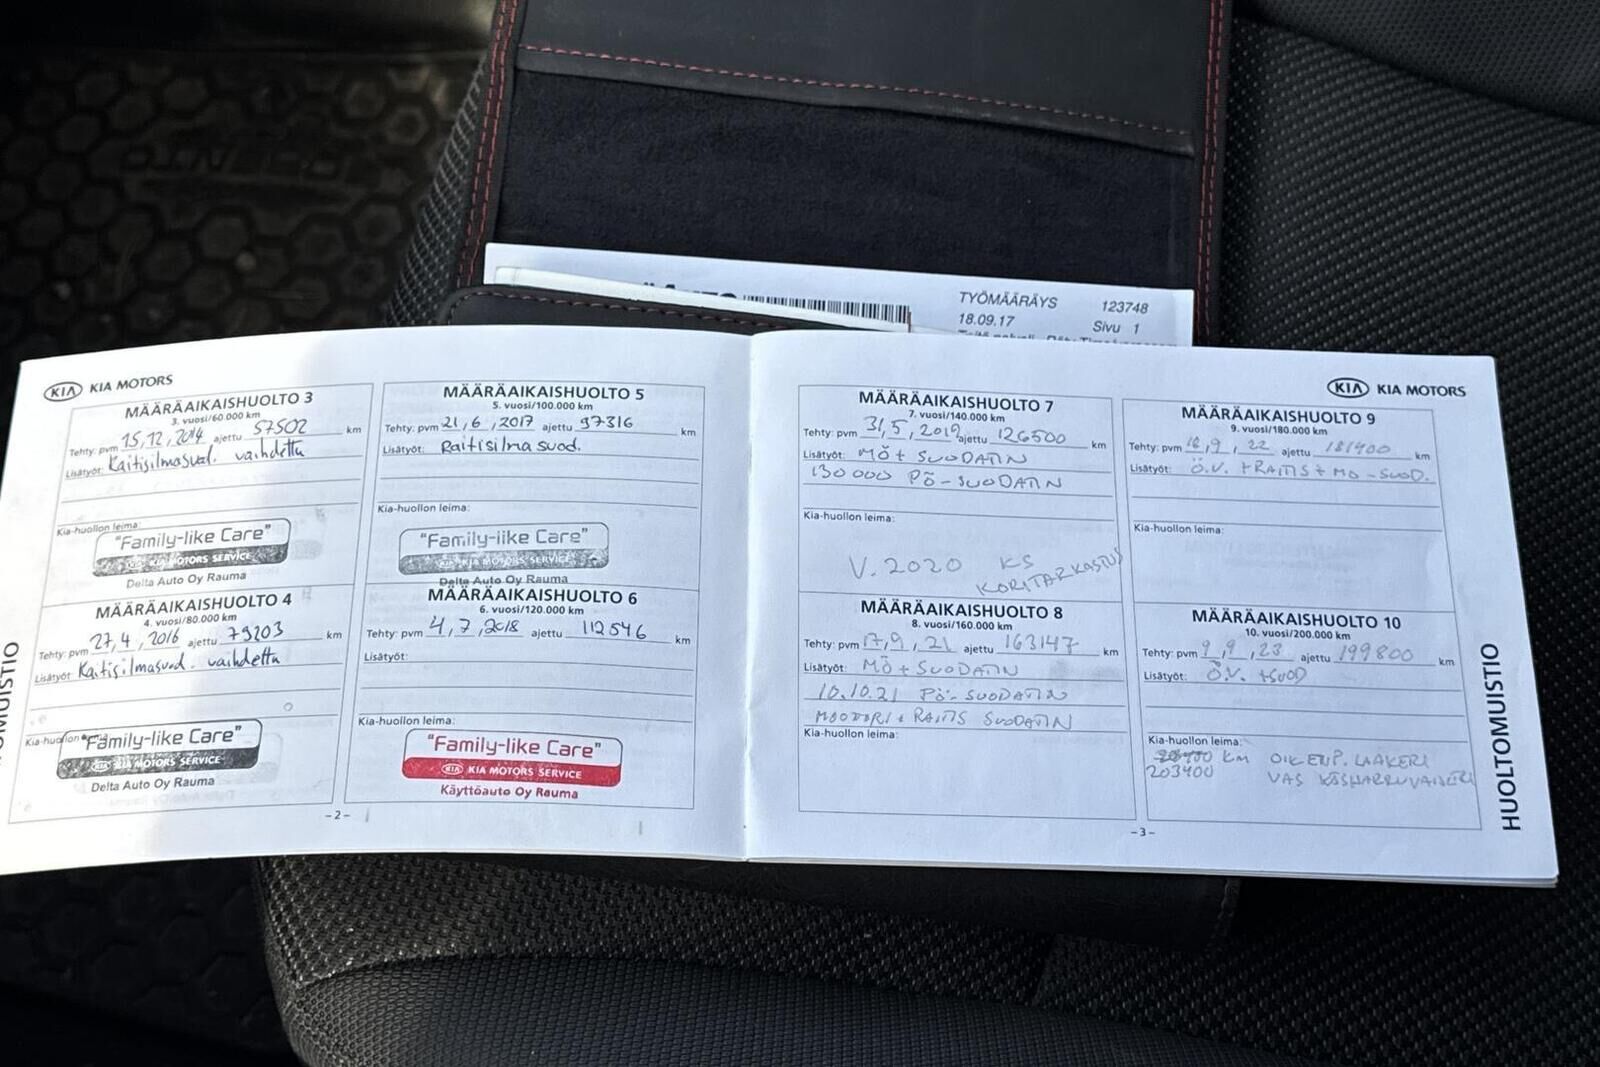 TYÖMÄÄRÄYS 123748
18.09.17 Sivu 1
KIA KIA MOTORS
MÄÄRÄAIKAISHUOLTO 3
3. vuosi/60.000 km
Tehty: pvm 15,12,2014 ajettu 57502 km
Lisätyöt: Raitisilmasuod. vaihdettu
Kia-huollon leima:
"Family-like Care"
KIA MOTORS SERVICE
Delta Auto Oy Rauma
MÄÄRÄAIKAISHUOLTO 4
4. vuosi/80.000 km
Tehty: pvm 27,4,2016 ajettu 79203 km
Lisätyöt Raitisilmasuod. vaihdettu
Kia-huollon leima
"Family-like Care"
KIA MOTORS SERVICE
Delta Auto Oy Rauma
MÄÄRÄAIKAISHUOLTO 5
5. vuosi/100.000 km
Tehty: pvm 21,6,2017 ajettu 97316 km
Lisätyöt: Raitisilma suod.
Kia-huollon leima:
"Family-like Care"
KIA MOTORS SERVICE
Delta Auto Oy Rauma
MÄÄRÄAIKAISHUOLTO 6
6. vuosi/120.000 km
Tehty: pvm 4,7,2018 ajettu 112546 km
Lisätyöt:
Kia-huollon leima:
"Family-like Care"
KIA MOTORS SERVICE
Käyttöauto Oy Rauma
-2-
KIA KIA MOTORS
MÄÄRÄAIKAISHUOLTO 7
7. vuosi/140.000 km
Tehty: pvm 31,5,2019 ajettu 126500 km
Lisätyöt: MÖ + SUODATIN
130 000 PÖ-SUODATIN
Kia-huollon leima:
V. 2020 KS
KORITARKASTUS
MÄÄRÄAIKAISHUOLTO 8
8. vuosi/160.000 km
Tehty: pvm 17,9,21 ajettu 163147 km
Lisätyöt: MÖ + SUODATIN
10.10.21 PÖ-SUODATIN
MOOTORI + RAITIS SUODATIN
Kia-huollon leima:
MÄÄRÄAIKAISHUOLTO 9
9. vuosi/180.000 km
Tehty: pvm 12,9,22 ajettu 181400 km
Lisätyöt: Ö.V. + RAITIS + MO-SUOD.
Kia-huollon leima:
MÄÄRÄAIKAISHUOLTO 10
10. vuosi/200.000 km
Tehty: pvm 9,9,23 ajettu 199800 km
Lisätyöt: Ö.V. + SUOD
Kia-huollon leima:
km OIK ETUP. LAAKERI
203400 VAS
-3-
HUOLTOMUISTIO